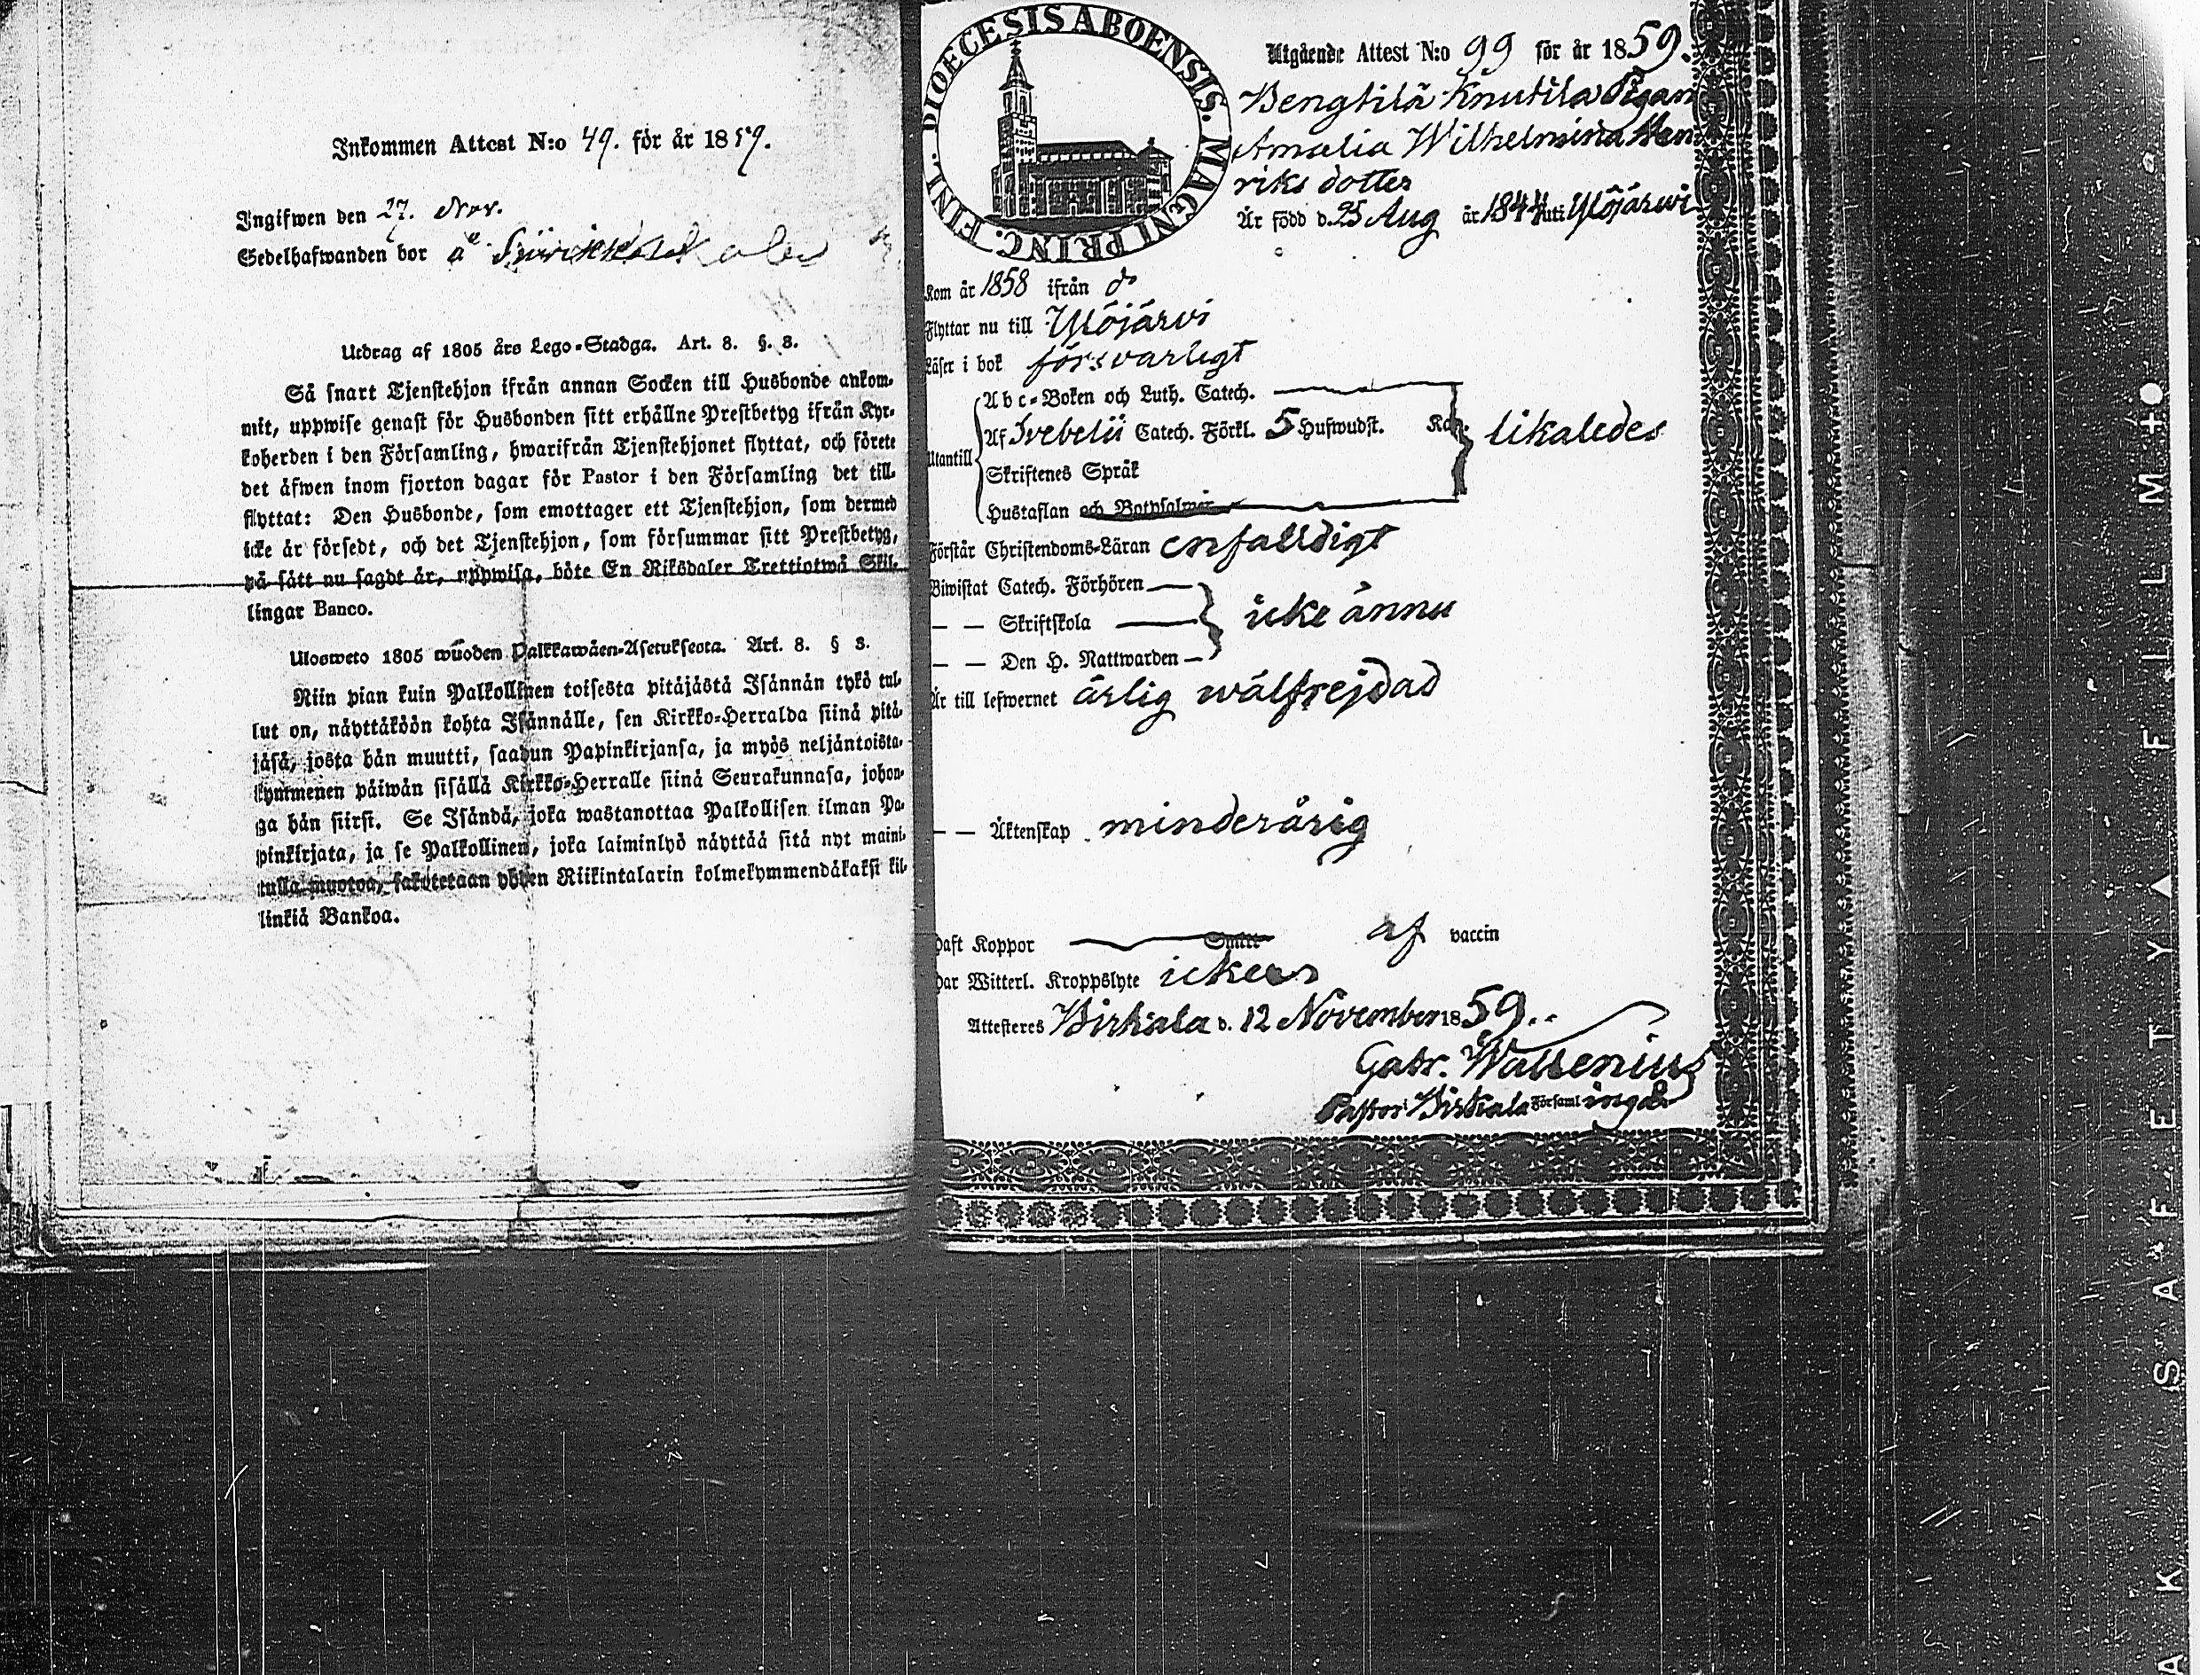 Inkommen Attest N:o 49. för år 1859.
Ingifwen den 27. Nov.
Sedelhafwanden bor å
Utdrag af 1805 års Lego-Stadga. Art. 8. §. 3.
Så snart Tjenstehjon ifrån annan Socken till Husbonde ankom-
mit, uppwise genast för Husbonden sitt erhållne Prestbetyg ifrån Kyr-
koherden i den Församling, hwarifrån Tjenstehjonet flyttat, och förete
det äfwen inom fjorton dagar för Pastor i den Församling det till-
flyttat: Den Husbonde, som emottager ett Tjenstehjon, som dermed
icke är försedt, och det Tjenstehjon, som försummar sitt Prestbetyg,
på sätt nu sagdt är, uppwisa, böte En Riksdaler Trettiotwå Skil-
lingar Banco.
Ulosweto 1805 wuoden Palkkawäen-Asetuksesta. Art. 8. § 3.
Niin pian kuin Palkollinen toisesta pitäjästä Isännän tykö tul-
lut on, näyttäköön kohta Isännälle, sen Kirkko-Herralda siinä pitä-
jäsä, josta hän muutti, saadun Papinkirjansa, ja myös neljäntoista-
kymmenen päiwän sisällä Kirkko-Herralle siinä Seurakunnasa, johon-
ga hän siirsi. Se Isändä, joka wastanottaa Palkollisen ilman Pa-
pinkirjata, ja se Palkollinen, joka laiminlyö näyttää sitä nyt maini-
tulla muotoa, sakotetaan yhden Riikintalarin kolmekymmendäkaksi kil-
linkiä Bankoa.
DIOECESIS ABOENSIS. MAGNI PRINC. FINL.
Utgående Attest N:o 99 för år 1859.
Bengtilä Knutila Pigan
Amalia Wilhelmina Hen
riks dotter
Är född d. 25 Aug år 1844 uti Ylöjärwi
Kom år 1858 ifrån do
Flyttar nu till Ylöjärwi
Läser i bok försvarligt
Utantill
Abc-Boken och Luth. Catech.
Af Svebelii Catech. Förkl. 5 Hufwudst. Kap. likaledes
Skriftenes Språk
Hustaflan och Botpsalmer
Förstår Christendoms-Läran enfalldigt
Biwistat Catech. Förhören
— — Skriftskola icke ännu
— — Den H. Nattwarden
Är till lefwernet ärlig wälfrejdad
— — Äktenskap minderårig
Haft Koppor Smitt af vaccin
Har Witterl. Kroppslyte icke
Attesteres Birkala d. 12 November 1859.
Gabr. Wallenius
Pastor i Birkala Församlingar
AKSAFETYAFILM